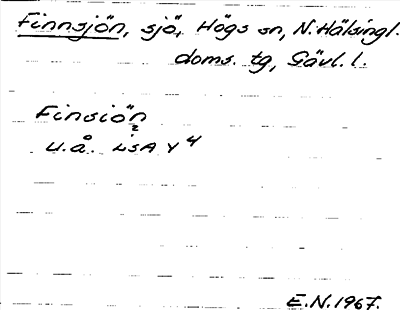 Finnsjön, sjö, Högs sn, N. Hälsingl.
doms. tg, Gävl. l.
Finsiön
U.å. LSA Y 4
E.N. 1967.